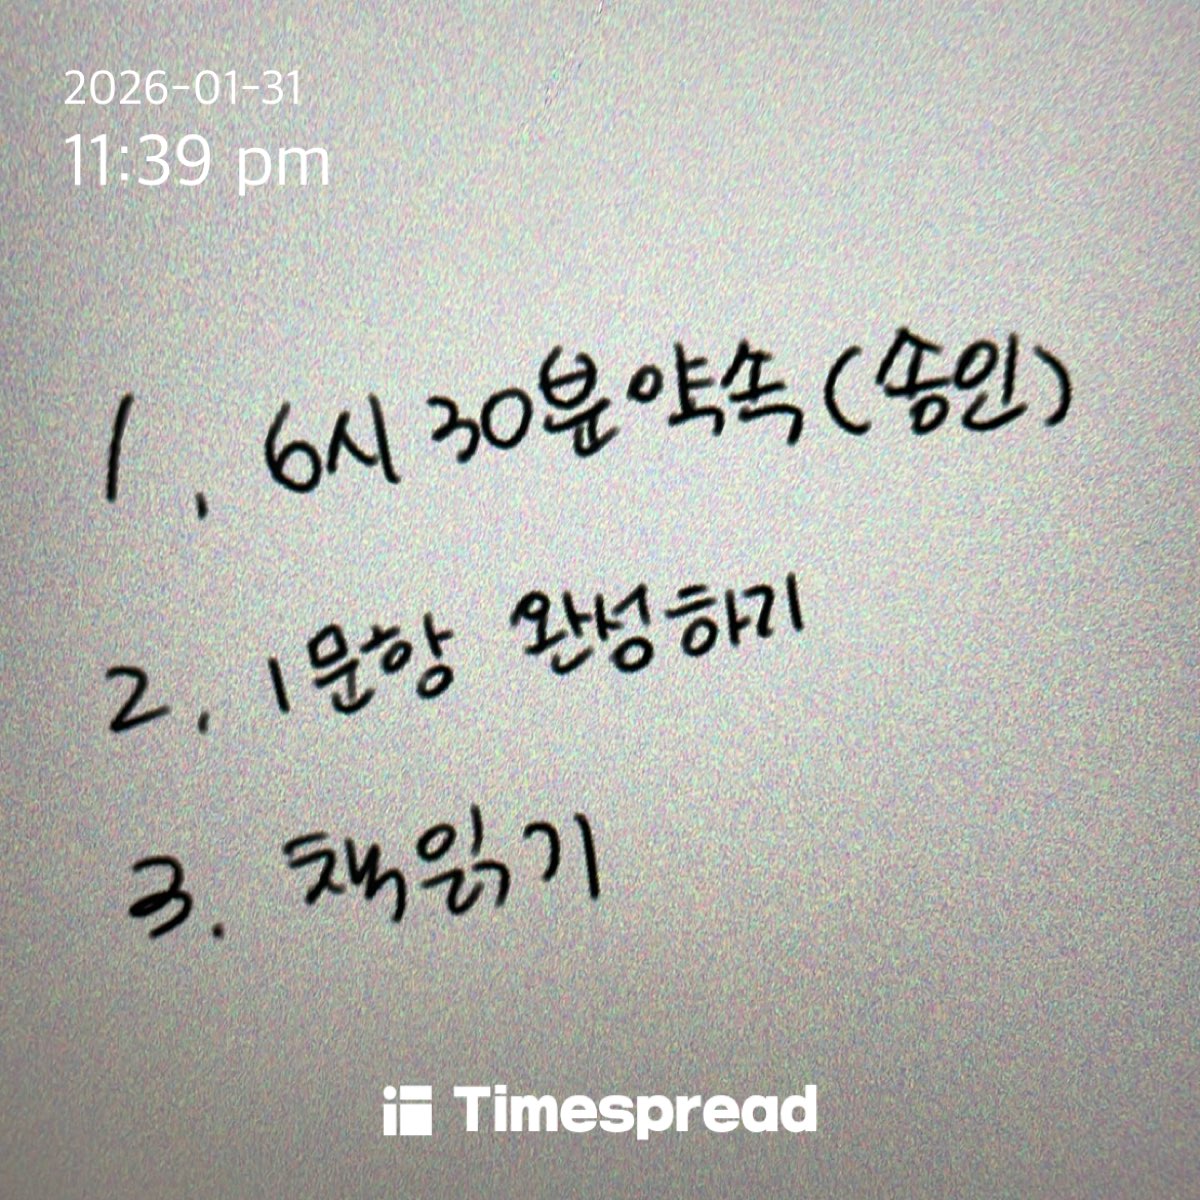 2026-01-31
11:39 pm
1. 6시 30분 약속 (송인)
2. 1문항 완성하기
3. 책읽기
Timespread